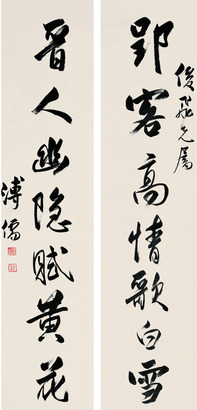 郢客高情歌白雪
俊飛兄屬
晋人幽隐賦黄花
溥儒